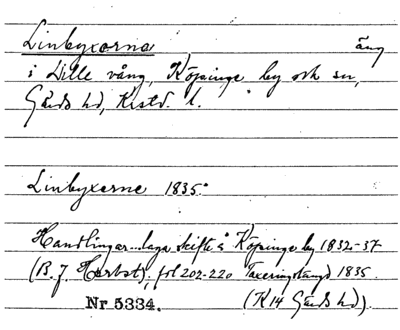 Linbyxorna äng
i Lille vång, Köpinge by och sn,
Gärds hd, Kristd. l.
Linbyxerne 1835.
Handlingar...laga skifte å Köpinge by 1832-37
(B. J. Herbst), fol 202-220 Taxeringslängd 1835.
Nr 5334. (K14 Gärds hd)